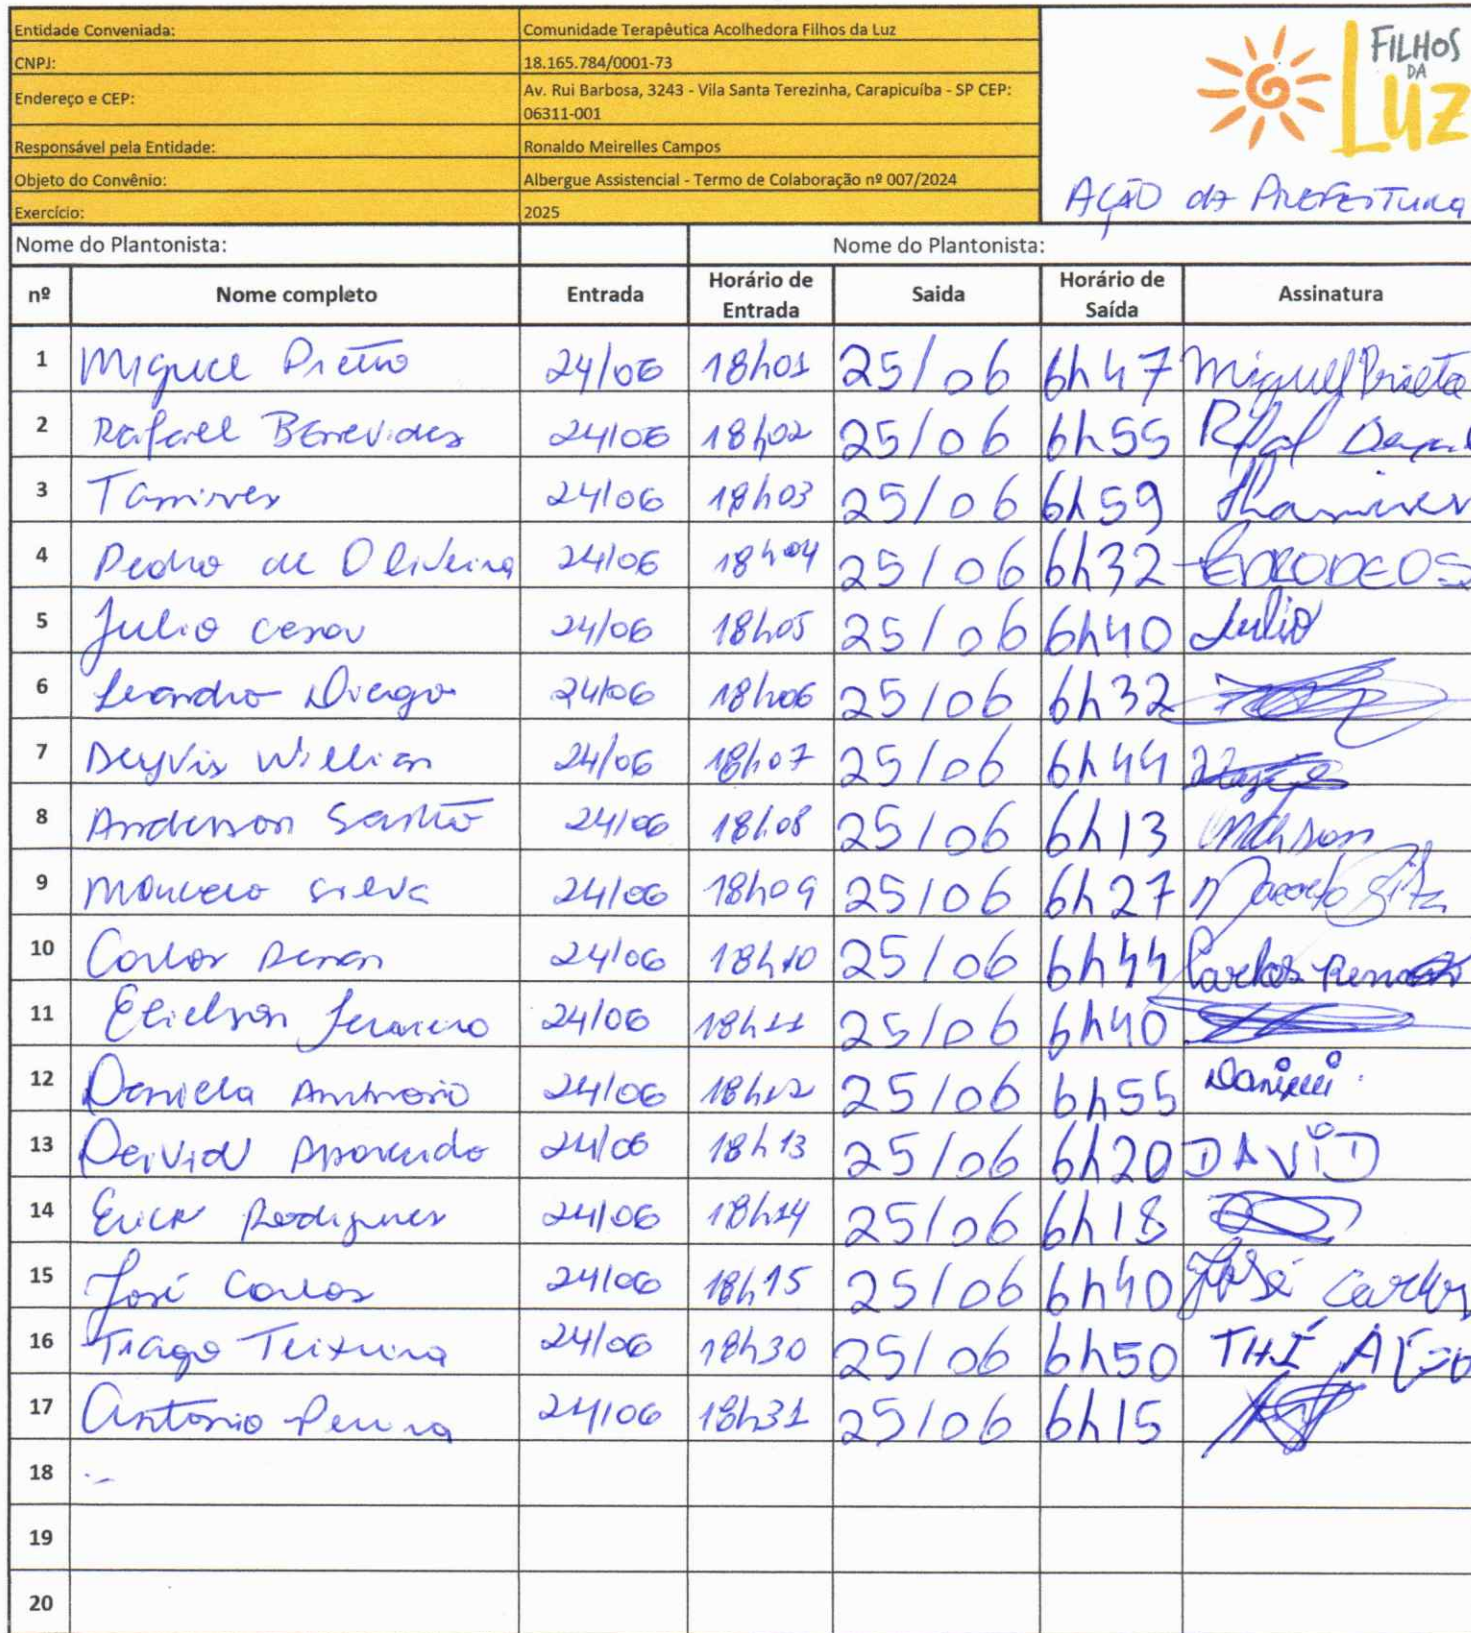 Entidade Conveniada: Comunidade Terapêutica Acolhedora Filhos da Luz
CNPJ: 18.165.784/0001-73
Endereço e CEP: Av. Rui Barbosa, 3243 - Vila Santa Terezinha, Carapicuíba - SP CEP:
06311-001
Responsável pela Entidade: Ronaldo Meirelles Campos
Objeto do Convênio: Albergue Assistencial - Termo de Colaboração nº 007/2024
Exercício: 2025
FILHOS
DA
LUZ
AÇÃO da PREFEITURA
Nome do Plantonista: Nome do Plantonista:
nº Nome completo Entrada Horário de Entrada Saida Horário de Saída Assinatura
1 Miguel Prieto 24/06 18h01 25/06 6h47 Miguel Prieto
2 Rafael Benevides 24/06 18h02 25/06 6h55
3 Tamires 24/06 18h03 25/06 6h59 Thamires
4 Pedro de Oliveira 24/06 18h04 25/06 6h32
5 Julio Cesar 24/06 18h05 25/06 6h40 Julio
6 Leandro Diego 24/06 18h06 25/06 6h32
7 Deyvis Willian 24/06 18h07 25/06 6h44
8 Anderson Santo 24/06 18h08 25/06 6h13 Anderson
9 Marcelo Silva 24/06 18h09 25/06 6h27
10 Carlos Renan 24/06 18h10 25/06 6h44 Carlos Renan
11 Elielson 24/06 18h11 25/06 6h40
12 Daniela Ambrosio 24/06 18h12 25/06 6h55
13 Deivid Aparecido 24/06 18h13 25/06 6h20 DAViD
14 Erick Rodrigues 24/06 18h14 25/06 6h18
15 José Carlos 24/06 18h15 25/06 6h40 José Carlos
16 Tiago Teixeira 24/06 18h30 25/06 6h50
17 Antonio Pereira 24/06 18h31 25/06 6h15
18
19
20